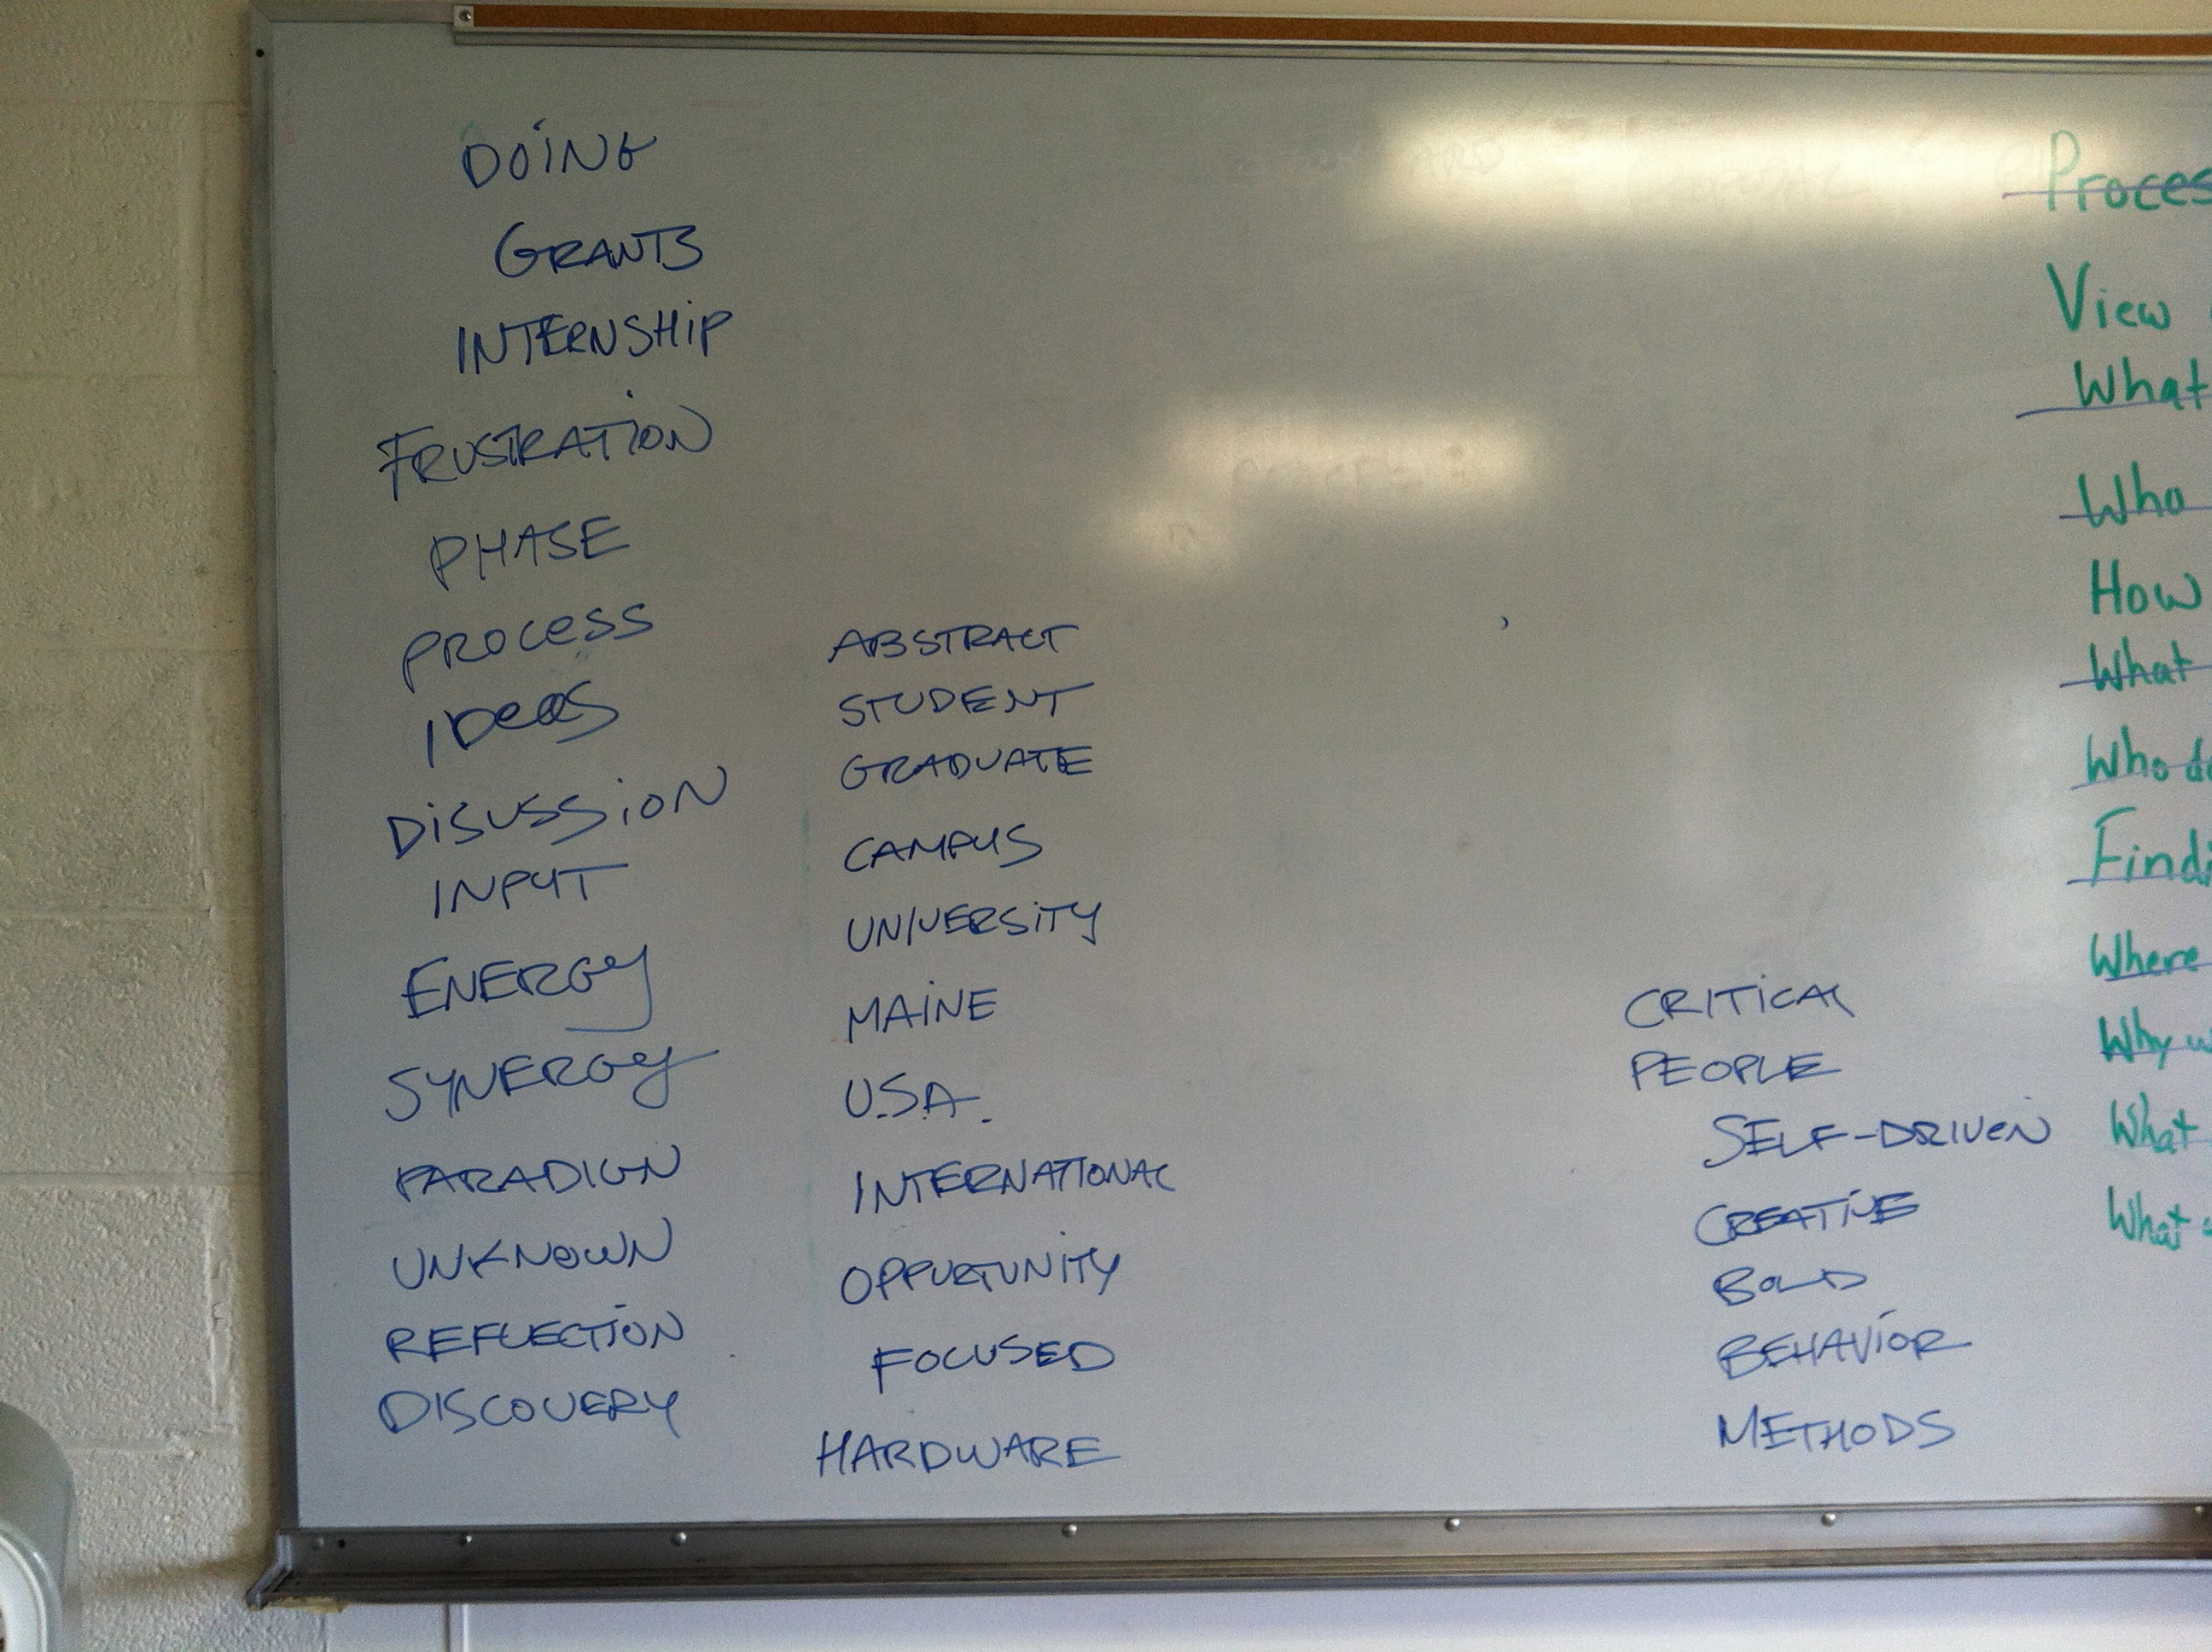 DOING
GRANTS
INTERNSHIP
FRUSTRATION
PHASE
PROCESS
IDEAS
DISUSSION
INPUT
ENERGY
SYNERGY
PARADIGN
UNKNOWN
REFLECTION
DISCOVERY
ABSTRACT
STUDENT
GRADUATE
CAMPUS
UNIVERSITY
MAINE
U.S.A.
INTERNATIONAL
OPPURTUNITY
FOCUSED
HARDWARE
CRITICAL
PEOPLE
SELF-DRIVEN
CREATIVE
BOLD
BEHAVIOR
METHODS
Proces
View
What
Who
How
What
Who
Findi
Where
Why
What
What